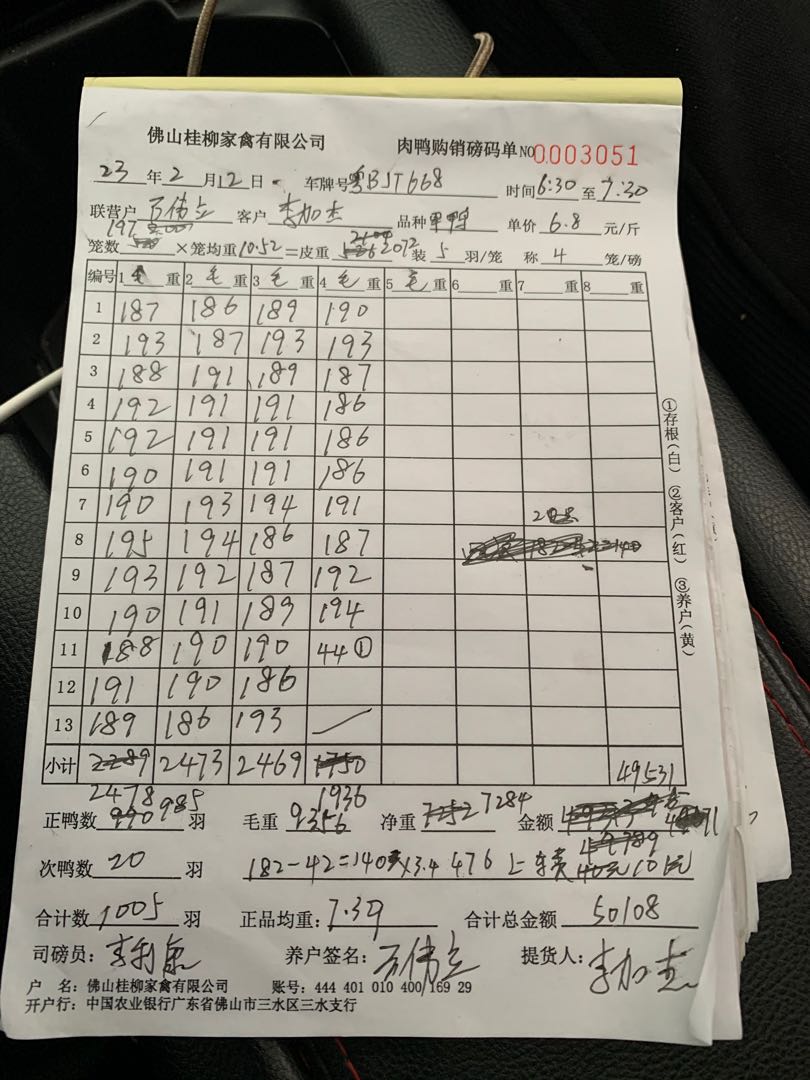 佛山桂柳家禽有限公司 肉鸭购销磅码单 NO 0003051
23 年 2 月 12 日 车牌号 粤BJT668 时间 6:30 至 7:30
联营户 万伟立 客户 李加杰 品种 甲鸭 单价 6.8 元/斤
笼数 197 ×笼均重 10.52 =皮重 2072 装 5 羽/笼 称 4 笼/磅
编号 1 毛 重 2 毛 重 3 毛 重 4 毛 重 5 毛 重 6 重 7 重 8 重
1 187 186 189 190
2 193 187 193 193
3 188 191 189 187
4 192 191 191 186
5 192 191 191 186
6 190 191 191 186
7 190 193 194 191
8 195 194 186 187
9 193 192 187 192
10 190 191 189 194
11 188 190 190 44 ①
12 191 190 186
13 189 186 193
小计 2478 2473 2469 1936 49531
正鸭数 985 羽 毛重 9356 净重 7284 金额
次鸭数 20 羽 182-42=140 ×3.4 476 上车费 101元
合计数 1005 羽 正品均重: 7.39 合计总金额 50108
司磅员: 养户签名: 万伟立 提货人: 李加杰
户 名: 佛山桂柳家禽有限公司 账号: 444 401 010 400 169 29
开户行: 中国农业银行广东省佛山市三水区三水支行
①存根(白) ②客户(红) ③养户(黄)